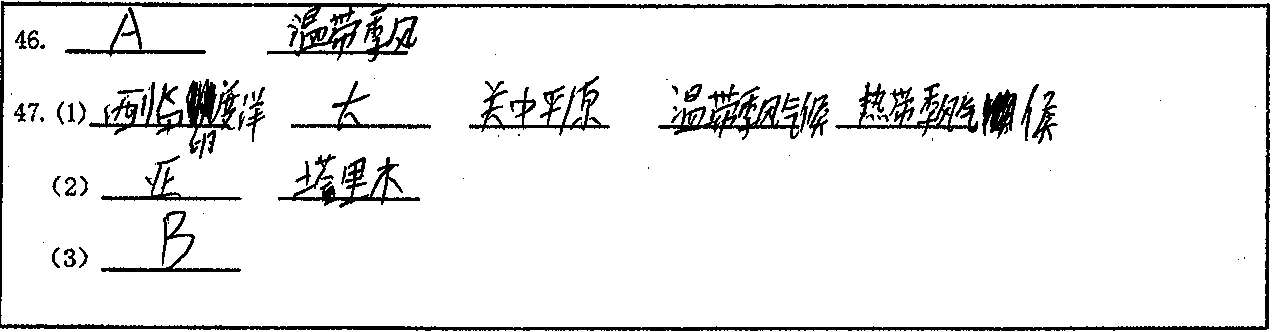 46. A 温带季风
47. (1) 西北与印度洋 大 关中平原 温带季风气候 热带季风气候
(2) 旺 塔里木
(3) B